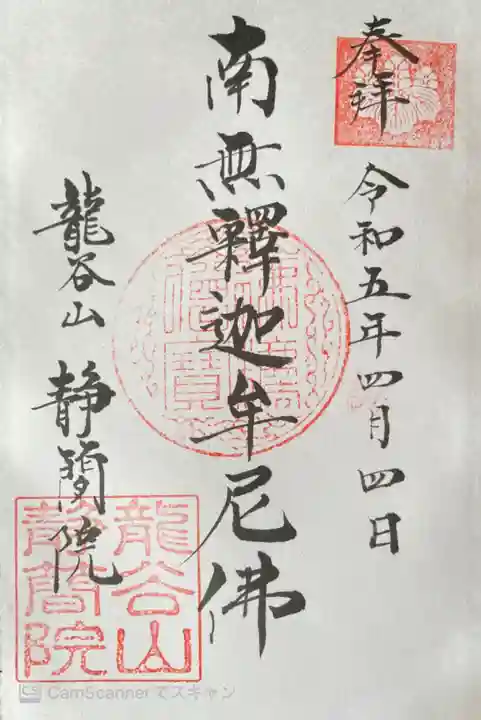 奉拝
令和五年四月四日
南無釋迦牟尼佛
龍谷山 静簡院
佛法僧寶
龍谷山
静簡院
CS CamScanner でスキャン